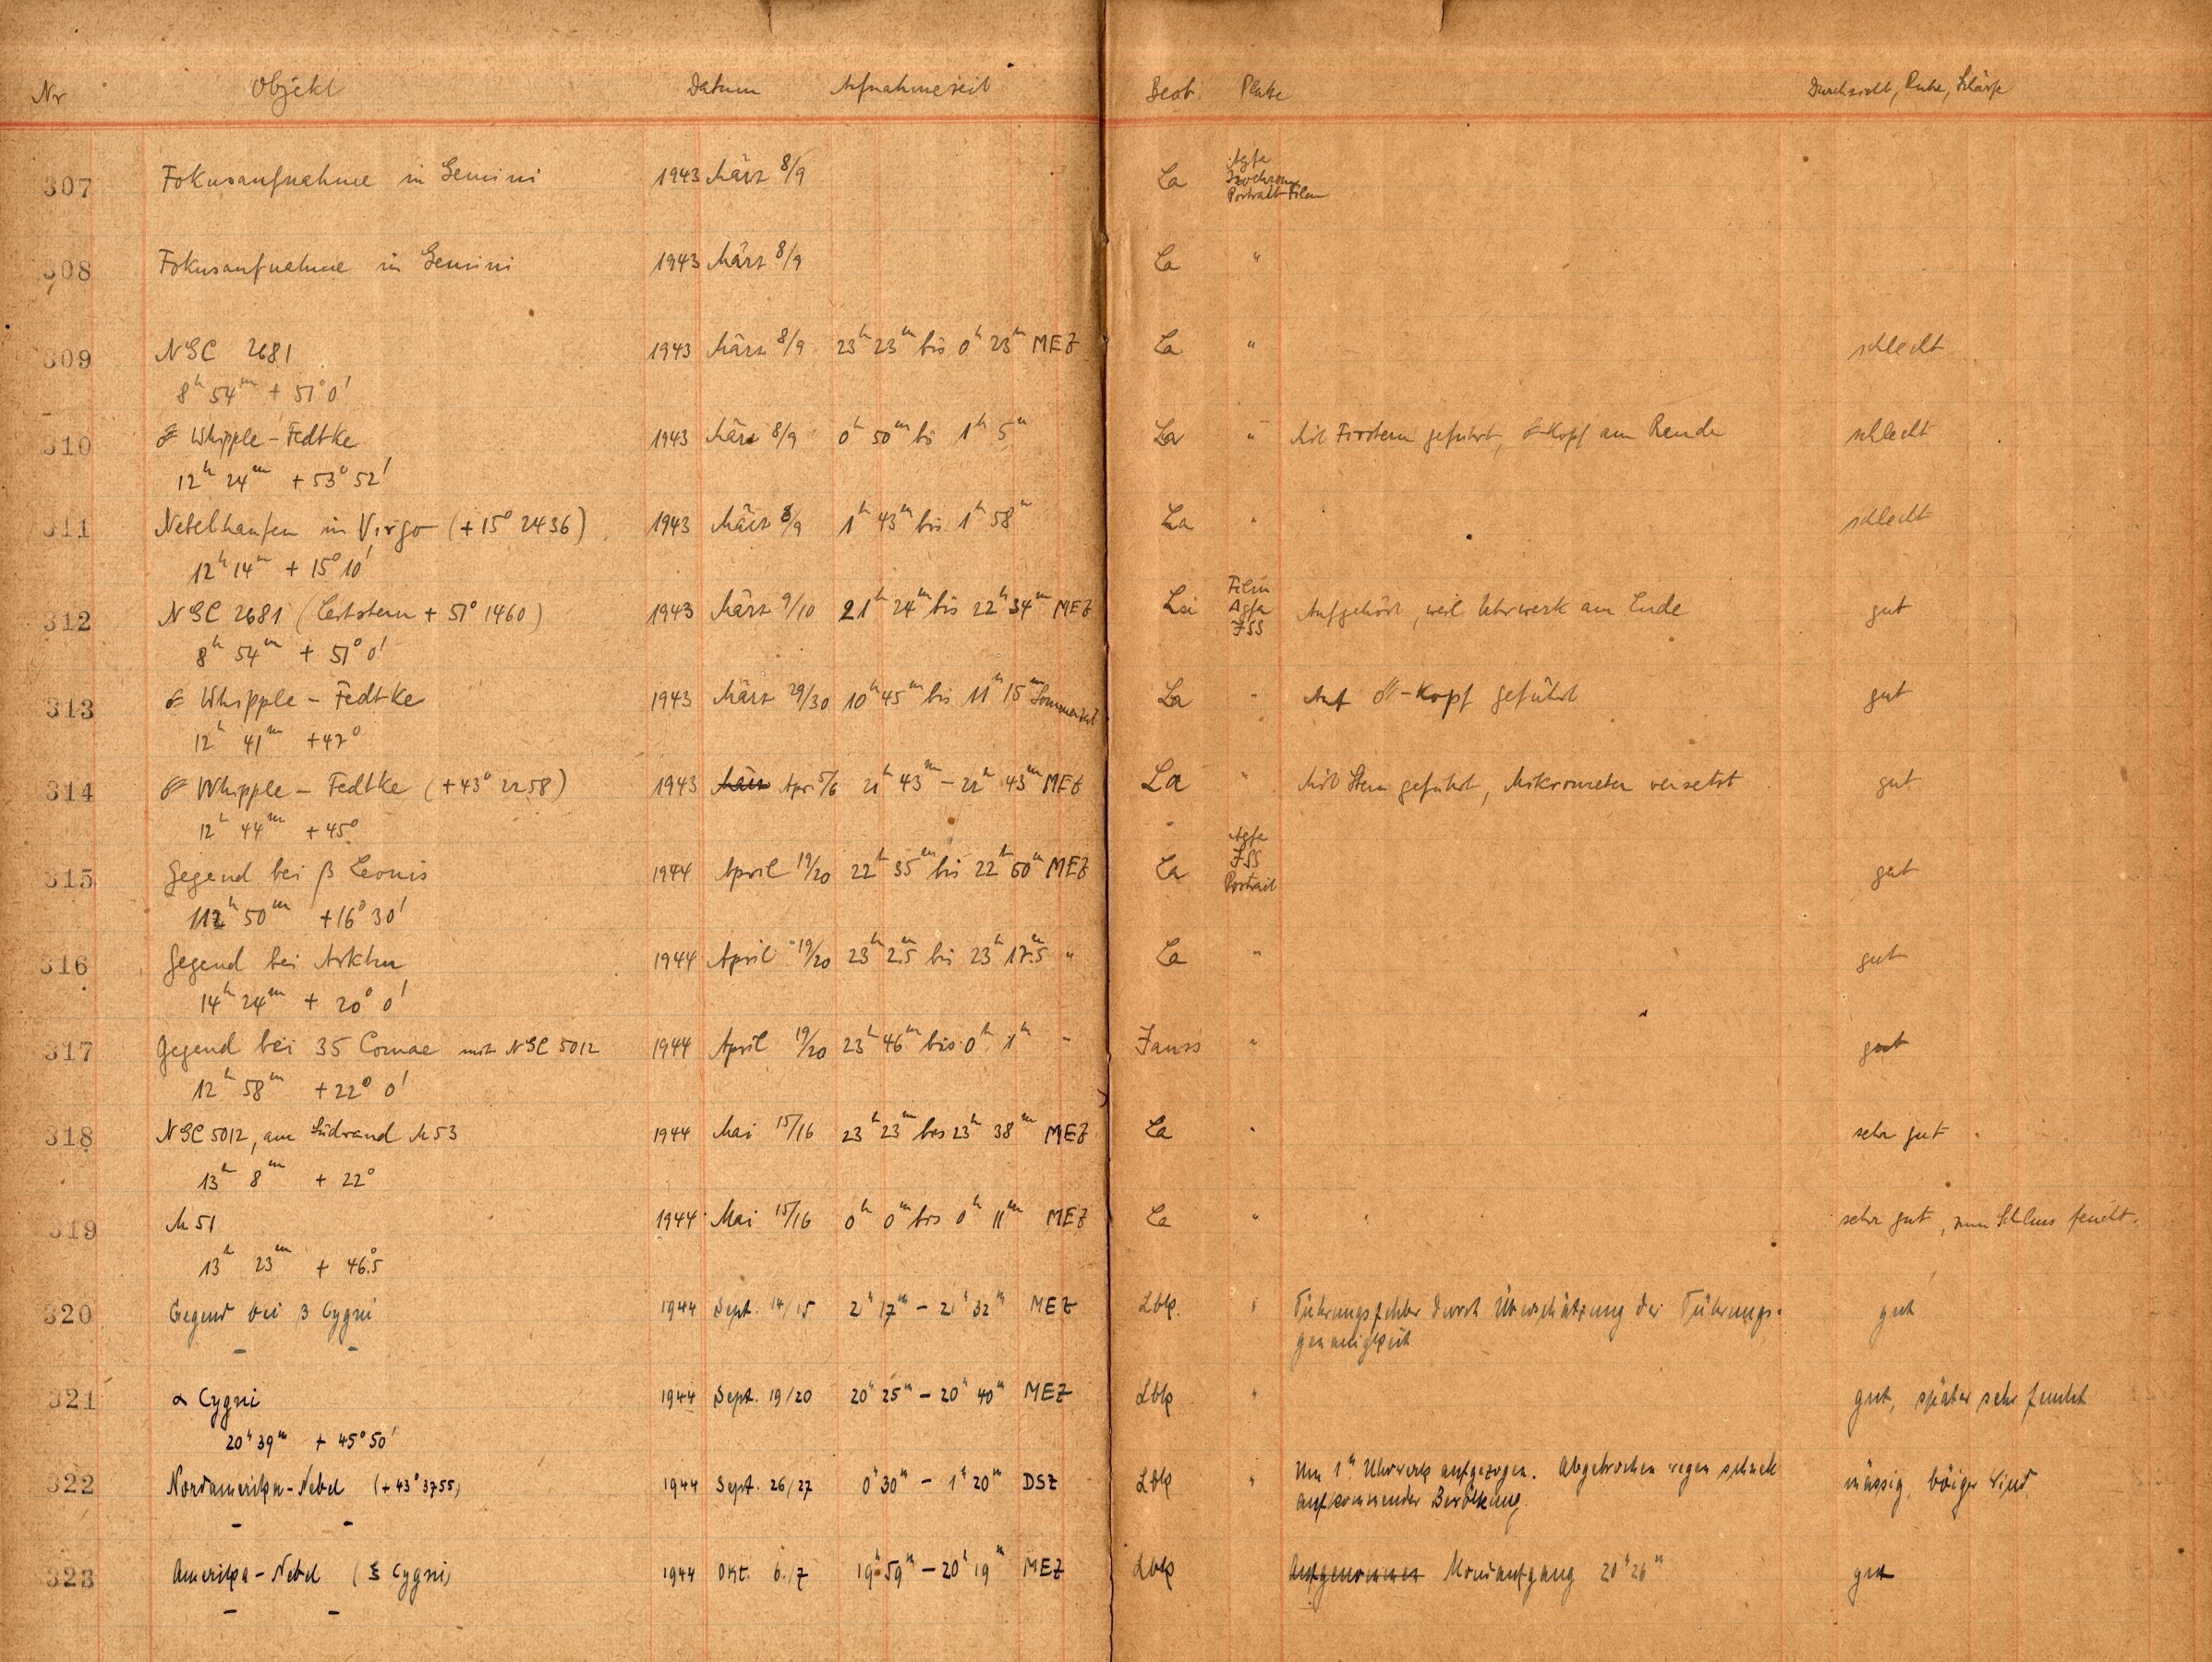 Nr Objekt Datum Aufnahmezeit Beob. Platte Durchsicht, Ruhe, Schärfe
307 Fokusaufnahme in Gemini 1943 März 8/9 La Agfa Isochrom Portrait Film
308 Fokusaufnahme in Gemini 1943 März 8/9 La "
309 NGC 2681 1943 März 8/9 23h 23m bis 0h 23m MEZ La " schlecht
8h 54m + 51° 0'
310 ☄ Whipple-Fedtke 1943 März 8/9 0h 50m bis 1h 5m La " Mit Fixstern geführt, ☄-Kopf am Rande schlecht
12h 24m + 53° 52'
311 Nebelhaufen in Virgo (+15° 2436) 1943 März 8/9 1h 43m bis 1h 58m La " schlecht
12h 14m + 15° 10'
312 NGC 2681 (Leitstern + 51° 1460) 1943 März 9/10 21h 24m bis 22h 34m MEZ Film Agfa ISS Aufgehört, weil Uhrwerk am Ende gut
8h 54m + 51° 0'
313 ☄ Whipple - Fedtke 1943 März 29/30 10h 45m bis 11h 15m Sommerzeit La " Auf ☄-Kopf geführt gut
12h 41m +47°
314 ☄ Whipple - Fedtke (+43° 2258) 1943 März Apr 5/6 21h 43m - 22h 43m MEZ La " Mit Stern geführt, Mikrometer versetzt gut
12h 44m +45°
315 Gegend bei β Leonis 1944 April 19/20 22h 35m bis 22h 50m MEZ La Agfa ISS Portrait gut
11h 50m +16° 30'
316 Gegend bei Arktur 1944 April 19/20 23h 2.5m bis 23h 17.5m " La " gut
14h 24m + 20° 0'
317 Gegend bei 35 Comae mit NGC 5012 1944 April 19/20 23h 46m bis 0h 1m " Jauss " gut
12h 58m +22° 0'
318 NGC 5012, am Südrand M53 1944 Mai 15/16 23h 23m bis 23h 38m MEZ La " sehr gut
13h 8m + 22°
319 M 51 1944 Mai 15/16 0h 0m bis 0h 11m MEZ La " sehr gut, zum Schluss feucht.
13h 23m + 46.°5
320 Gegend bei β Cygni 1944 Sept. 14/15 21h 17m - 21h 32m MEZ Lbk. " Führungsfehler durch Überschätzung der Führungs- gut
— — genauigkeit
321 α Cygni 1944 Sept. 19/20 20h 25m - 20h 40m MEZ Lbk " gut, später sehr feucht
20h 39m + 45° 50'
322 Nordamerika-Nebel (+43° 3755) 1944 Sept. 26/27 0h 30m - 1h 20m DSZ Lbk " Um 1h Uhrwerk aufgezogen. Abgebrochen wegen schnell mässig, böiger Wind
— — aufkommender Bewölkung.
323 Amerika-Nebel (ξ Cygni) 1944 Okt. 6./7 19h 59m - 20h 19m MEZ Lbk Aufgenommen Mondaufgang 20h 26m gut
— —